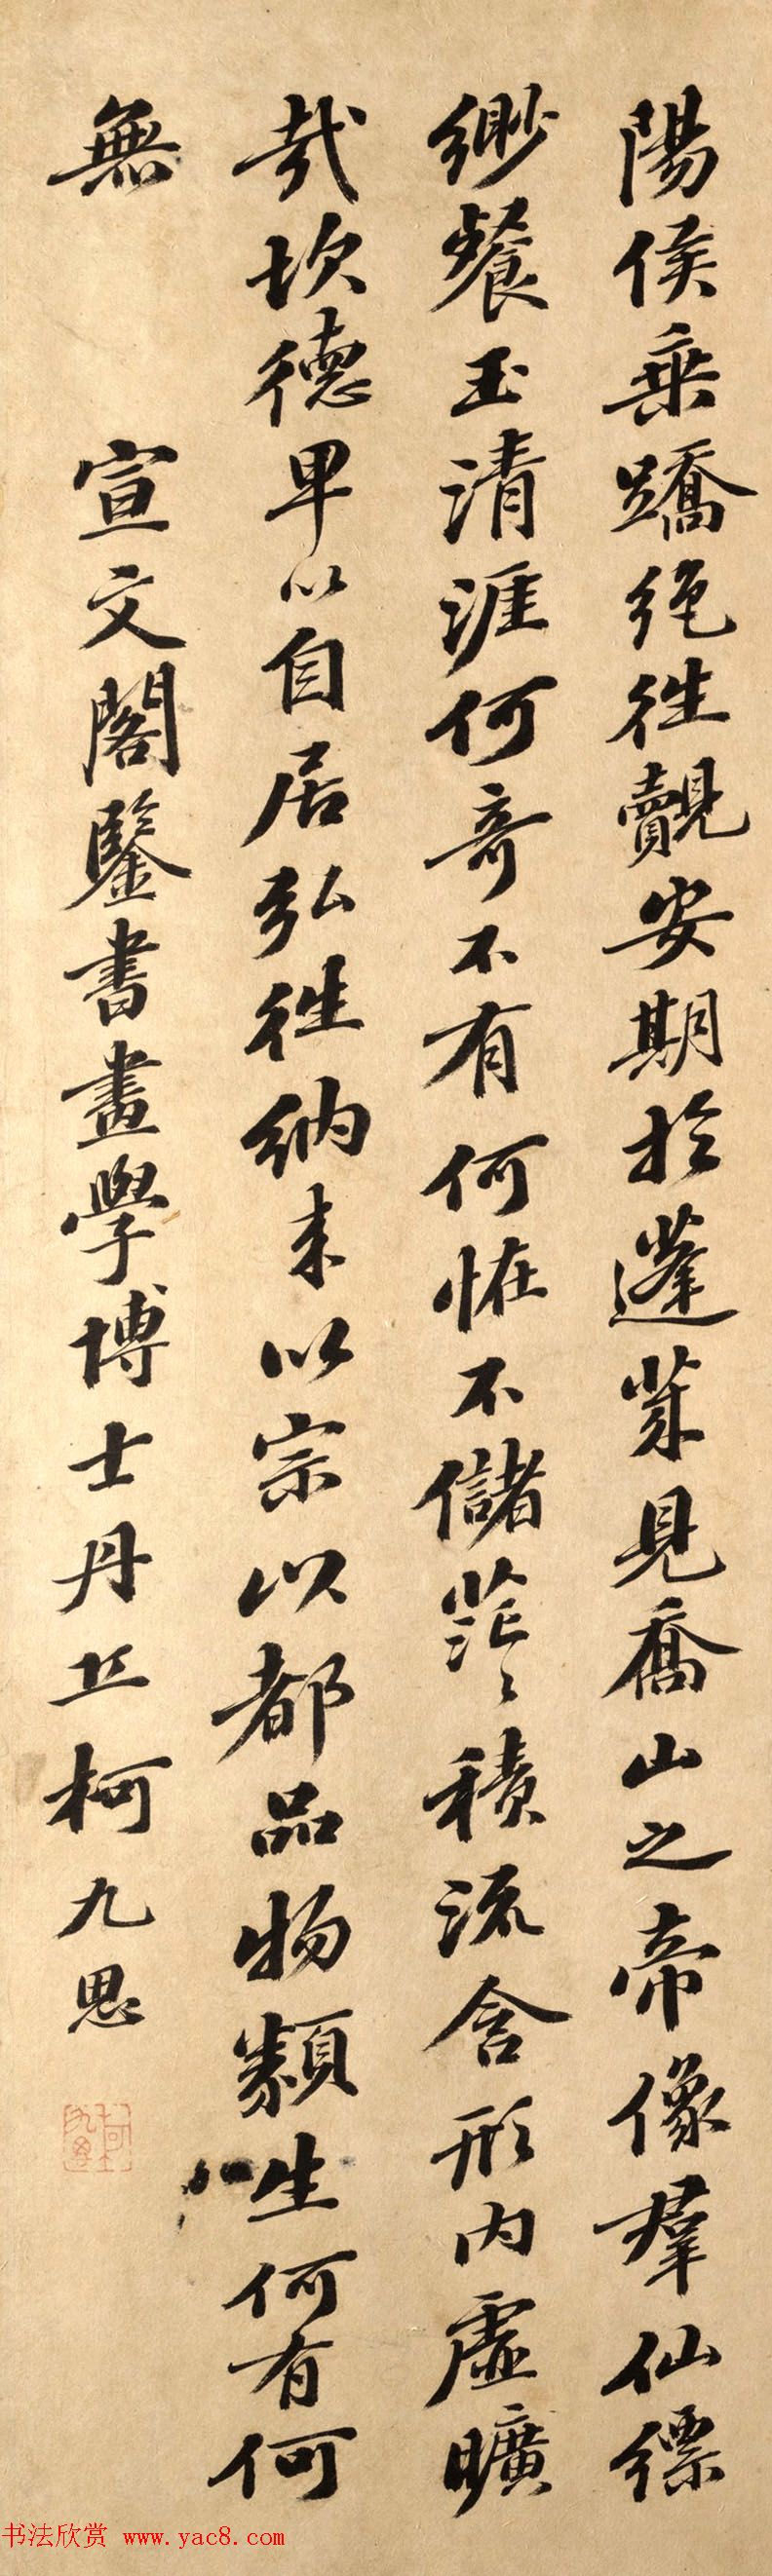 陽侯乗蹻絶徃覿安期於蓬萊見喬山之帝像羣仙縹
緲餐玉清涯何奇不有何恠不儲茫〻積流含形内虚曠
哉坎德卑以自居弘徃納来以宗以都品物類生何有何
無
宣文閣鑒書畫學博士丹丘柯九思
书法欣赏 www.yac8.com